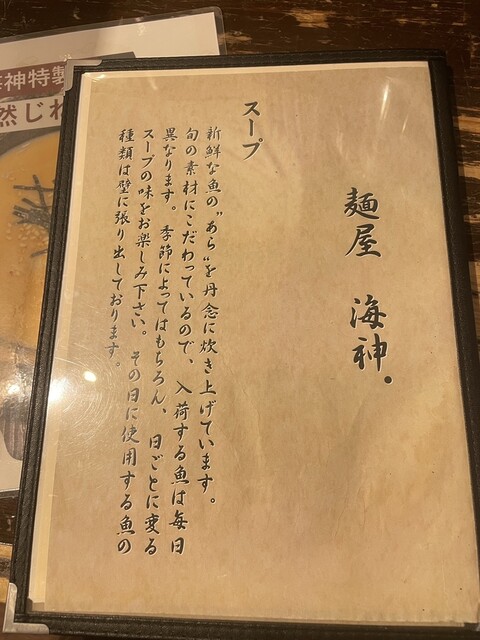 麺屋 海神.
スープ
新鮮な魚の"あら"を丹念に炊き上げています。
旬の素材にこだわっているので、入荷する魚は毎日
異なります。季節によってはもちろん、日ごとに変る
スープの味をお楽しみ下さい。その日に使用する魚の
種類は壁に張り出しております。
神特製
然じ